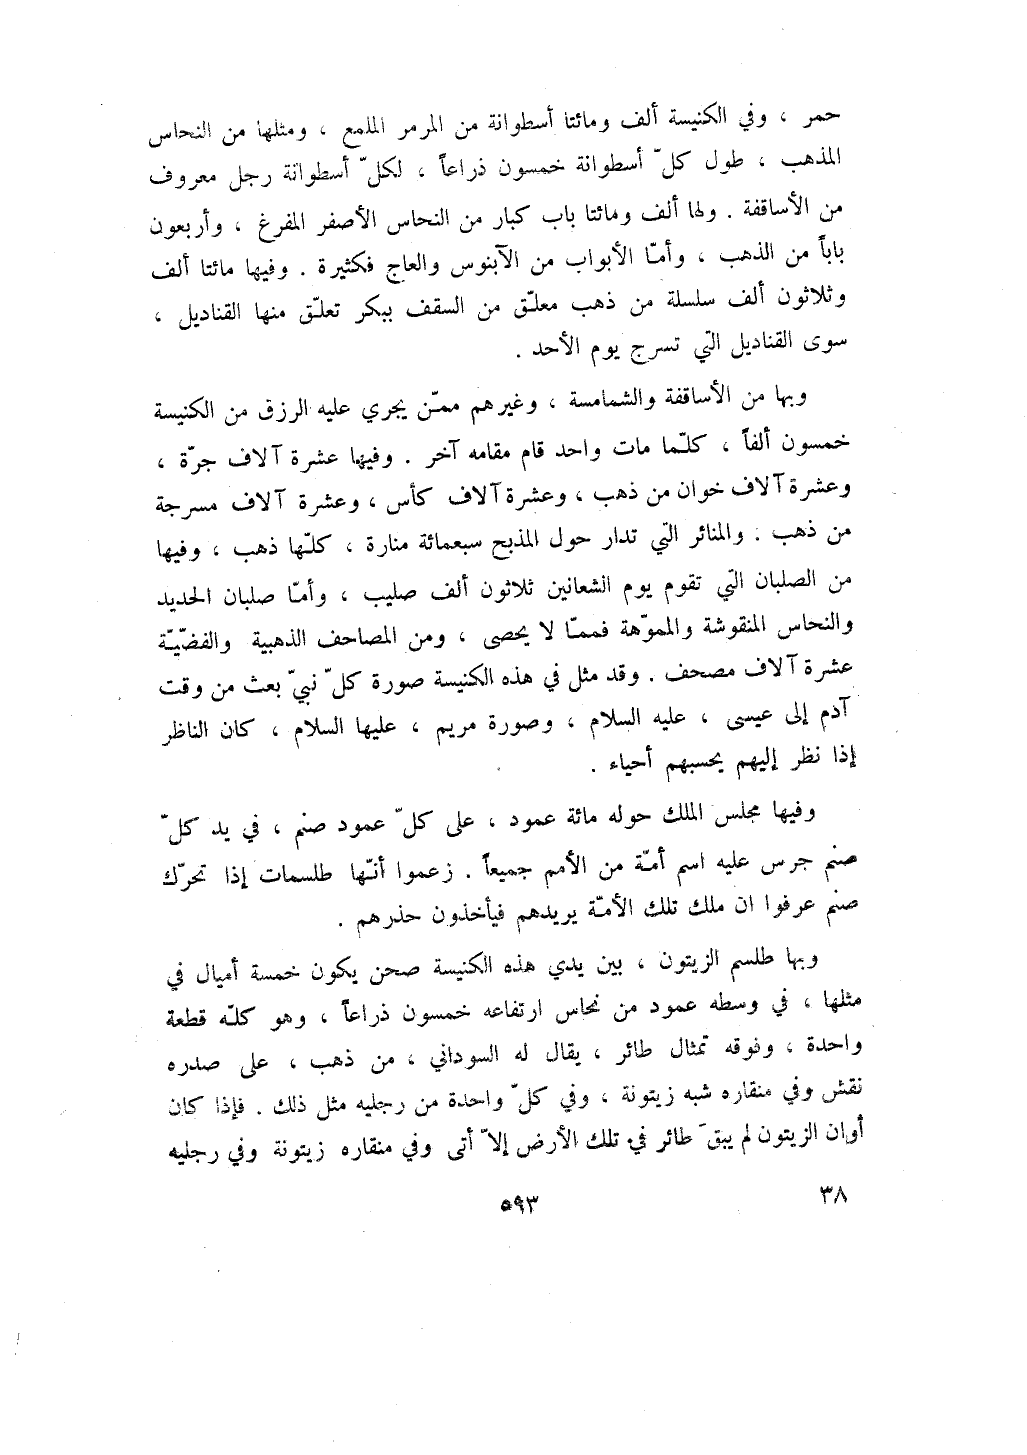 حمر ، وفي الكنيسة ألف ومائتا أسطوانة من المرمر الملمع ، ومثلها من النحاس
المذهب ، طول كلّ أسطوانة خمسون ذراعاً ، لكلّ أسطوانة رجل معروف
من الأساقفة . ولها ألف ومائتا باب كبار من النحاس الأصفر المفرغ ، وأربعون
باباً من الذهب ، وأمّا الأبواب من الآبنوس والعاج فكثيرة . وفيها مائتا ألف
وثلاثون ألف سلسلة من ذهب معلّق من السقف ببكر تعلّق منها القناديل ،
سوى القناديل التي تسرج يوم الأحد .
وبها من الأساقفة والشمامسة ، وغيرهم ممّن يجري عليه الرزق من الكنيسة
خمسون ألفاً ، كلّما مات واحد قام مقامه آخر . وفيها عشرة آلاف جرّة ،
وعشرة آلاف خوان من ذهب ، وعشرة آلاف كأس ، وعشرة آلاف مسرجة
من ذهب . والمنائر التي تدار حول المذبح سبعمائة منارة ، كلّها ذهب ، وفيها
من الصلبان التي تقوم يوم الشعانين ثلاثون ألف صليب ، وأمّا صلبان الحديد
والنحاس المنقوشة والمموّهة فممّا لا يحصى ، ومن المصاحف الذهبية والفضّيّة
عشرة آلاف مصحف . وقد مثل في هذه الكنيسة صورة كلّ نبيّ بعث من وقت
آدم إلى عيسى ، عليه السلام ، وصورة مريم ، عليها السلام ، كان الناظر
إذا نظر إليهم يحسبهم أحياء .
وفيها مجلس الملك حوله مائة عمود ، على كلّ عمود صنم ، في يد كلّ
صنم جرس عليه اسم أمّة من الأمم جميعاً . زعموا أنّها طلسمات إذا تحرّك
صنم عرفوا ان ملك تلك الأمّة يريدهم فيأخذون حذرهم .
وبها طلسم الزيتون ، بين يدي هذه الكنيسة صحن يكون خمسة أميال في
مثلها ، في وسطه عمود من نحاس ارتفاعه خمسون ذراعاً ، وهو كلّه قطعة
واحدة ، وفوقه تمثال طائر ، يقال له السوداني ، من ذهب ، على صدره
نقش وفي منقاره شبه زيتونة ، وفي كلّ واحدة من رجليه مثل ذلك . فإذا كان
أوان الزيتون لم يبقَ طائر في تلك الأرض إلاّ أتى وفي منقاره زيتونة وفي رجليه
٣٨
٥٩٣